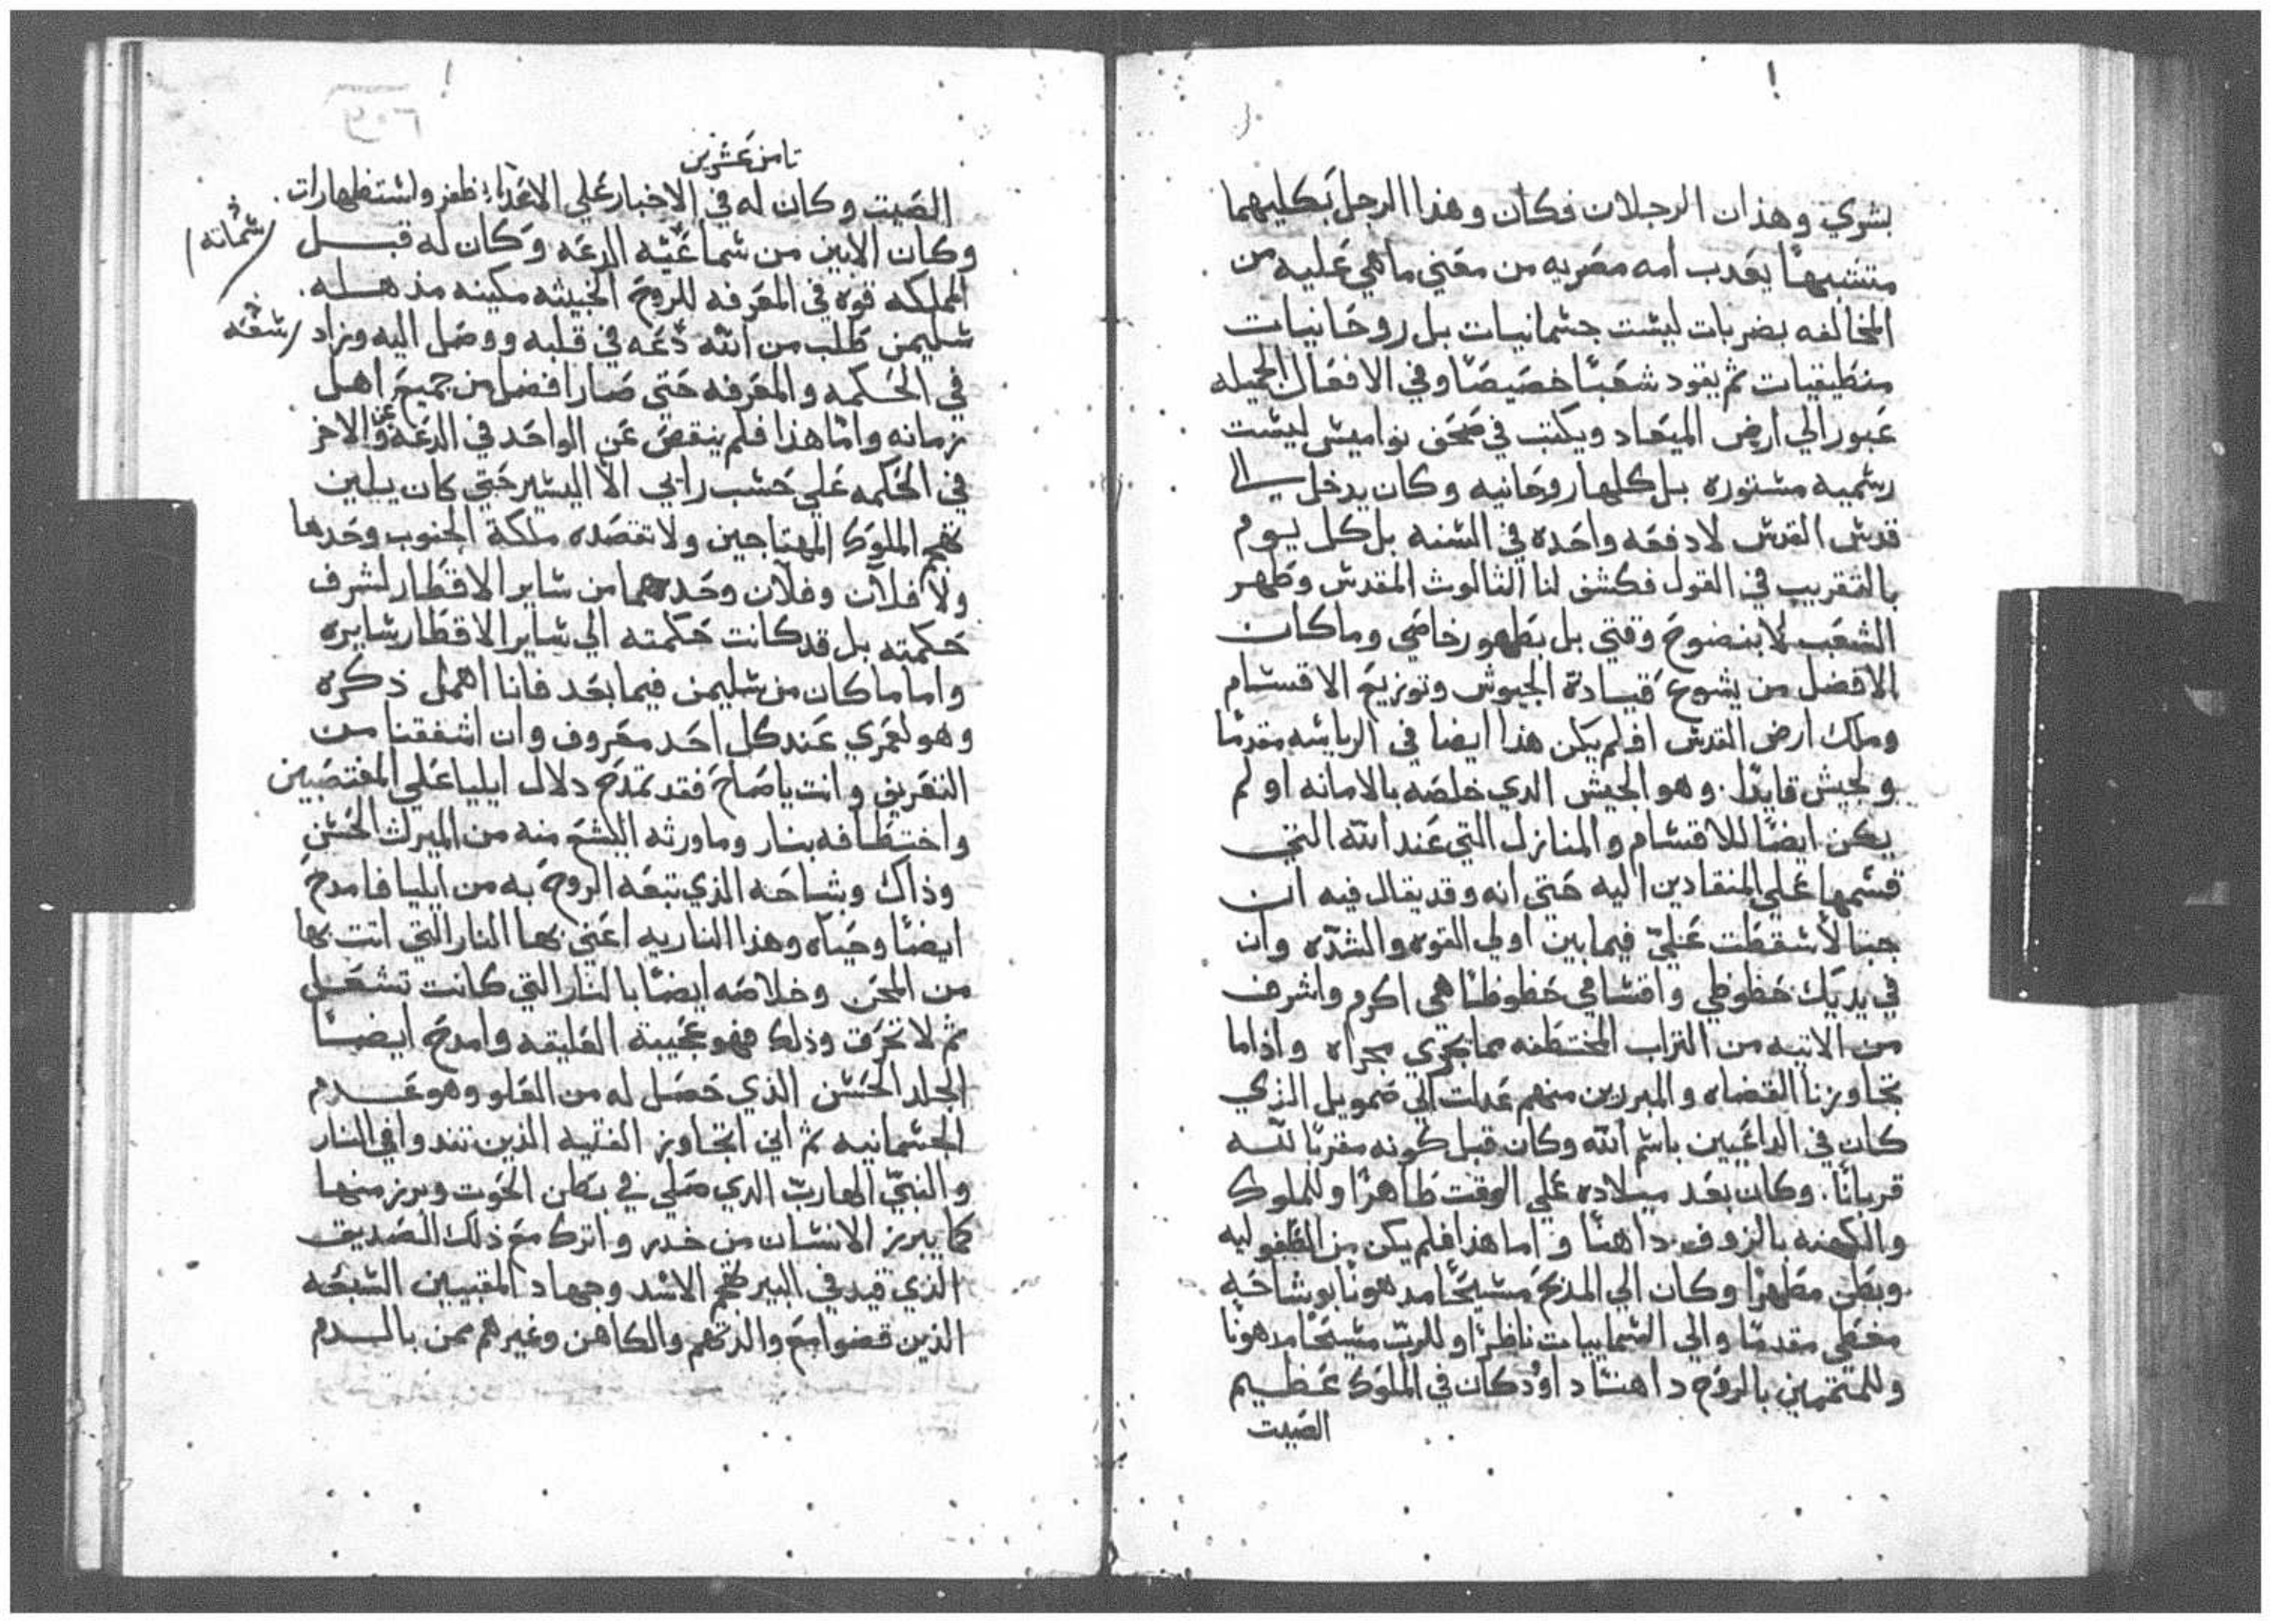 بشري وهذان الرجلان فكان وهذا الرجل بكليهما
متشبهًا يعدب امه مصريه من معني ما هي عليه من
المخالفه بضربات ليست جسمانيات بل روحانيات
منطيقيات ثم يقود شعبًا خصيصًا وفي الافعال الجميله
عبور الي ارض الميعاد ويكتب في صحف نواميس ليست
رسميه مستوره بل كلها روحانيه وكان يدخل الي
قدس القدس لا دفعه واحده في السنه بل كل يوم
بالتقريب في القول فكشف لنا الثالوث المقدس وطهر
الشعب لا بنضوح وقتي بل بطهور خاصي وما كان
الافضل من يشوع قيادة الجيوش وتوزيع الاقسام
وملك ارض القدس افلم يكن هذا ايضا في الرياسه مقدمًا
ولجيش قايدًا. وهو الجيش الدي خلصه بالامانه او لم
يكن ايضًا للاقسام والمنازل التي عند الله التي
قسمها علي المنقادين اليه حتى انه وقد يقال فيه ان
حبالاً سقطت عليّ فيما بين اولي القوه والشدّه وان
في يديك حظوظي واقسامي حظوظًا هي اكرم واشرف
من الاتيه من التراب المختطفه مما يجري مجراه واذا ما
تجاوزنا القضاه والمبررين منهم عمدت الي صمويل الذي
كان في الداعيين باسم الله وكان قبل كونه مقربًا لله
قربانًا. وكان بعد ميلاده علي الوقت طاهرًا وللملوك
والكهنه بالزوف داهنًا واما هذا فلم يكن من الطفوليه
وبطن مطهرًا وكان الي المذبح مسيحًا مدهونًا بوشاحه
مخطي مقدمًا والي السماييات ناظرًا وللرب مسيحًا مدهونًا
وللمتممين بالروح داهنًا داوُد كان في الملوك عظيم
الصيت
ثامن عشرين
الصيت وكان له في الاخبار علي الاعدا ظفر واستظهارات
وكان الابين من شماعيه الدعه وكان له قبل
شمانه
المملكه قوه في المعرفه للروح الخبيثه مكينه مذهله.
سليمن طلب من الله دعه في قلبه ووصل اليه وزاد
سعه
في الحكمه والمعرفه حتي صار افضل من جميع اهل
زمانه وامّا هذا فلم ينقص عن الواحد في الدعه وعن الاخر
في الحكمه علي حسب رايي الا اليسير حتي كان يلين
تفخم الملوك المهتاجين ولا تقصده ملكة الجنوب وحدها
ولا فلان وفلان وحدهما من ساير الاقطار لشرف
حكمته بل قد كانت حكمته الي ساير الاقطار سايره
واما ما كان من سليمن فيما بعد فانا اهمل ذكره
وهو لعمري عند كل احد معروف وان اشفقنا من
التعريف وانت يا صاح فقد تمدح دلال ايليا علي المغتصبين
واختطافه بنار وما ورثه اليشع منه من الميرث الحسن
وذاك وبشاحه الذي تبعه الروح به من ايليا فامدح
ايضًا وحياه وهذا الناريه اعني بها النار التي اتت بها
من المحن وخلاصه ايضًا بالنار التي كانت تشعل
ثم لا تحرق وذلك فهو عجيبة العليقه وامدح ايضًا
الجلد الحسن الذي حصل له من العلو وهو عدم
الجسمانيه ثم اني اتجاوز الفتيه الذين نندوا في النار
والنبيّ الهارب الدي صلي في بطن الحوت وبرز منها
كما يبرز الانسان من خدر واترك مع ذلك الصديق
الذي قيد في البير تفخم الاسد وجهاد المقبيين السبعه
الذين قضوا مع والدتهم والكاهن وغيرهم ممن بالدم